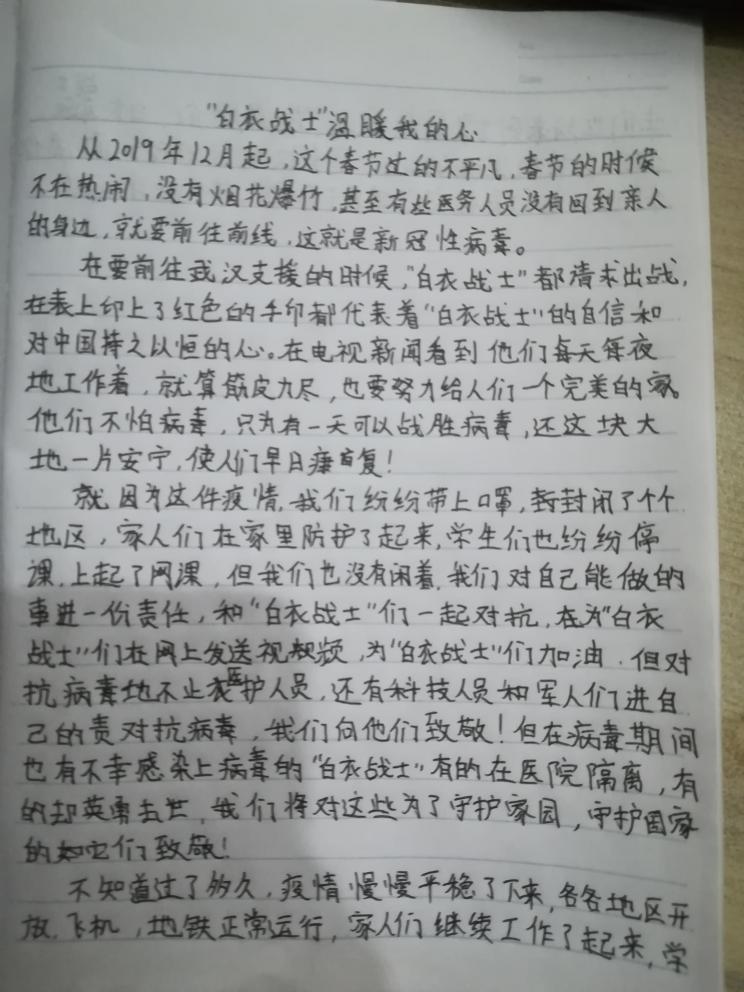 "白衣战士"温暖我的心
从2019年12月起，这个春节过的不平凡，春节的时候
不在热闹，没有烟花爆竹，甚至有些医务人员没有回到亲人
的身边，就要前往前线，这就是新冠性病毒。
在要前往武汉支援的时候，"白衣战士"都请求出战，
在表上印上了红色的手印都代表着"白衣战士"的自信和
对中国持之以恒的心。在电视新闻看到他们每天每夜
地工作着，就算筋皮力尽，也要努力给人们一个完美的家。
他们不怕病毒，只为有一天可以战胜病毒，还这块大
地一片安宁，使人们早日康复！
就因为这件疫情，我们纷纷带上口罩，封闭了个个
地区，家人们在家里防护了起来，学生们也纷纷停
课，上起了网课，但我们也没有闲着，我们对自己能做的
事进一份责任，和"白衣战士"们一起对抗，在为"白衣
战士"们在网上发送视频，为"白衣战士"们加油．但对
抗病毒地不止医护人员，还有科技人员和军人们进自
己的责对抗病毒，我们向他们致敬！但在病毒期间
也有不幸感染上病毒的"白衣战士"有的在医院隔离，有
的却英勇去世，我们将对这些为了守护家园，守护国家
的 它们致敬！
不知道过了多久，疫情慢慢平稳了下来，各各地区开
放，飞机，地铁正常运行，家人们继续工作了起来，学